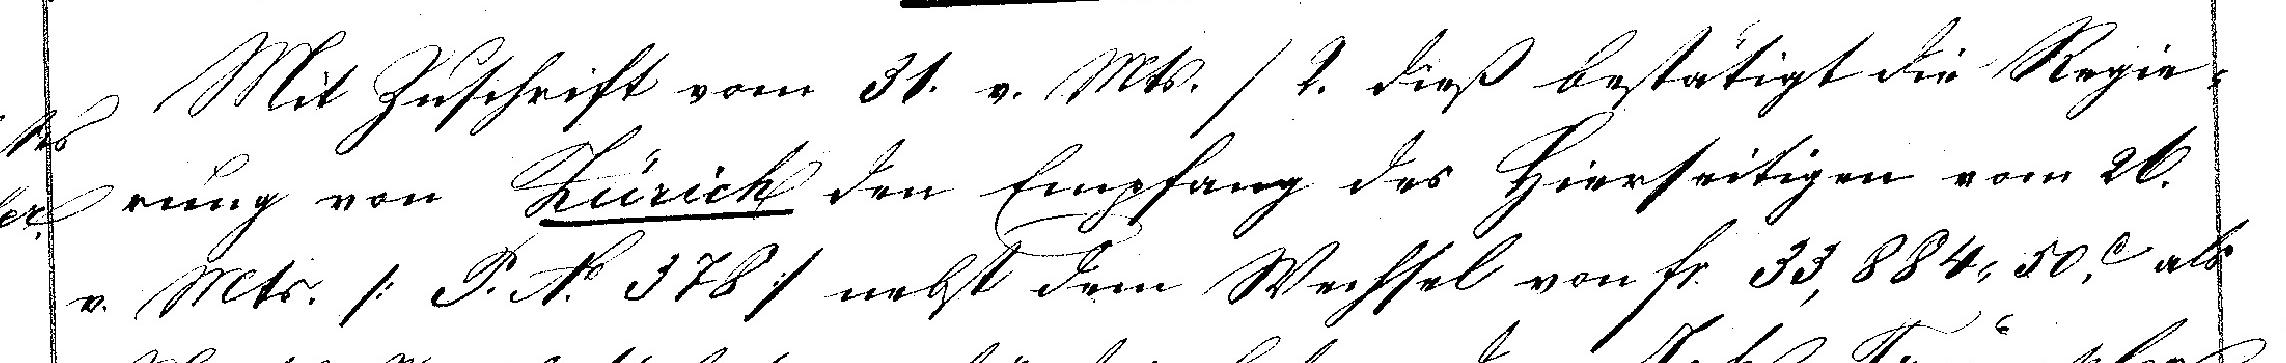 Mit Zuschrift vom 31. v. Mts. / 2. dieß bestätigt die Regie-
rung von Zürich den Empfang des Hierseitigen vom 26.
v. Mts. /: P. No. 378 :/ nebst dem Wechsel von fr. 33,884. 50. c als